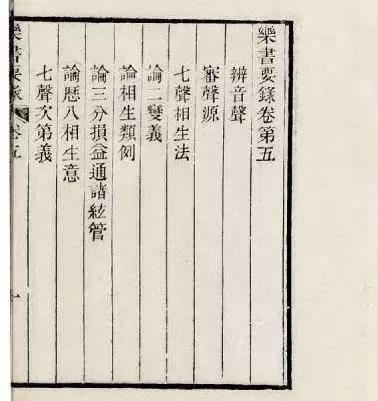 樂書要錄卷第五
辨音聲
審聲源
七聲相生法
論二變義
論相生類例
論三分損益通諸絃管
論歷八相生意
七聲次第義
樂書要錄
卷五